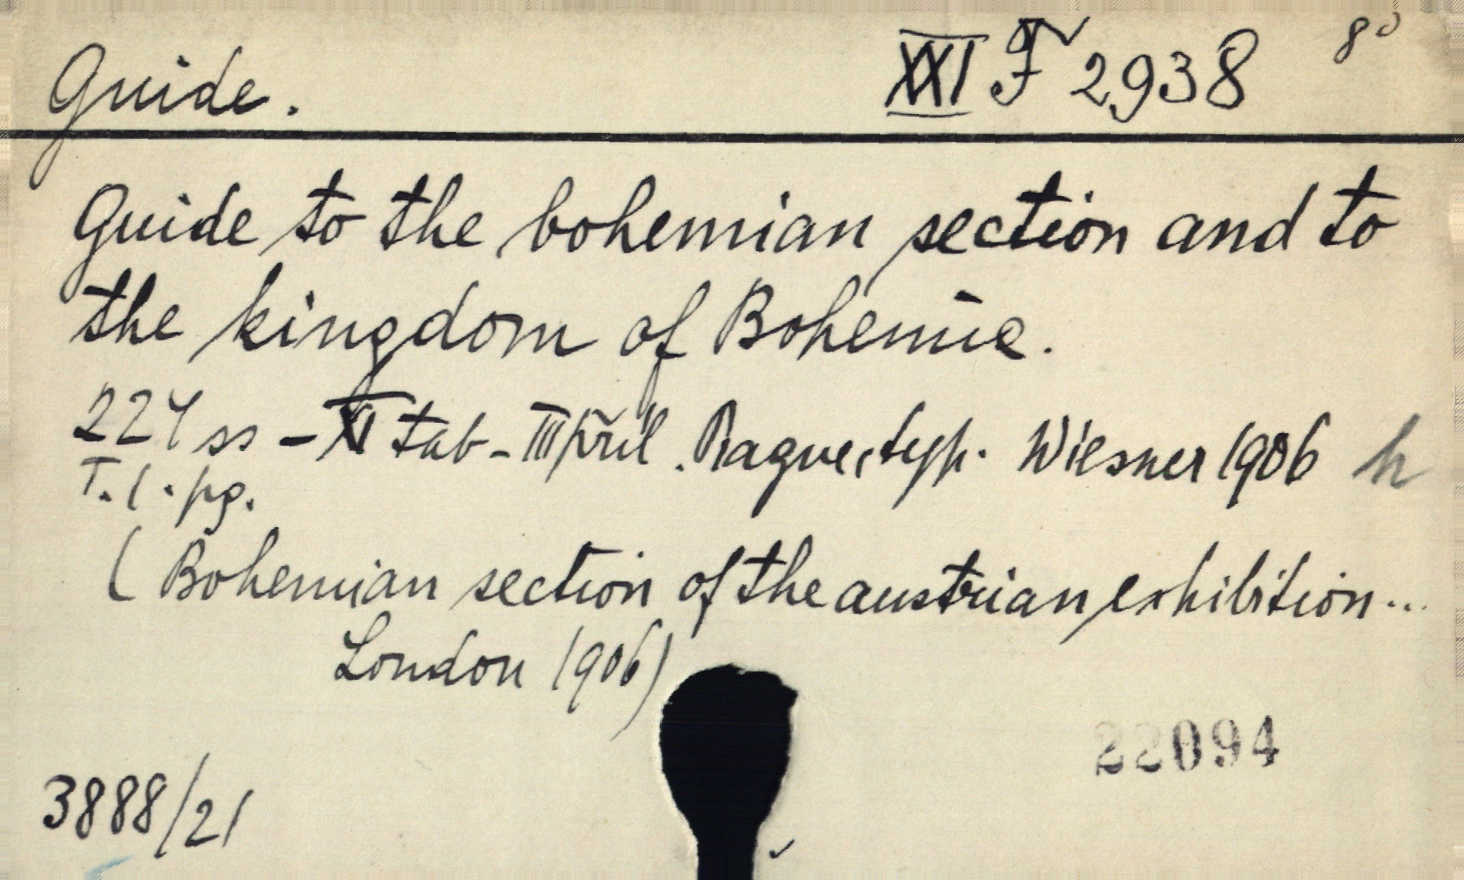 Guide. XXI F 2938 8°
Guide to the bohemian section and to
the kingdom of Bohemie.
224 ss - XI tab - III příl. Prague, typ. Wiesner 1906 h
T. l. pg.
(Bohemian section of the austrian exhibition...
London 1906)
22094
3888/21